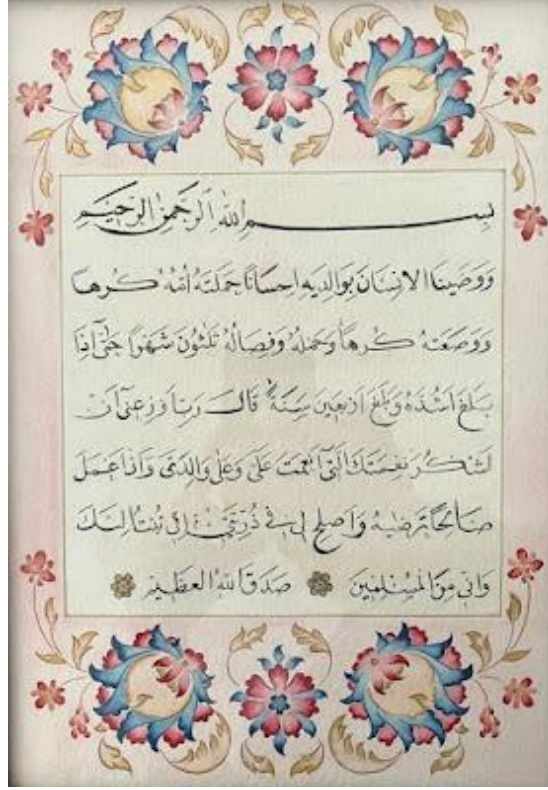 بِسْمِ اللهِ الرَّحْمٰنِ الرَّحِيمِ
وَوَصَّيْنَا الْاِنْسَانَ بِوَالِدَيْهِ اِحْسَانًا حَمَلَتْهُ اُمُّهُ كُرْهًا
وَوَضَعَتْهُ كُرْهًا وَحَمْلُهُ وَفِصَالُهُ ثَلٰثُونَ شَهْرًا حَتّٰٓى اِذَا
بَلَغَ اَشُدَّهُ وَبَلَغَ اَرْبَعِينَ سَنَةً قَالَ رَبِّ اَوْزِعْنِٓى اَنْ
اَشْكُرَ نِعْمَتَكَ الَّتِٓى اَنْعَمْتَ عَلَىَّ وَعَلٰى وَالِدَىَّ وَاَنْ اَعْمَلَ
صَالِحًا تَرْضٰيهُ وَاَصْلِحْ لِى فِى ذُرِّيَّتِى اِنِّى تُبْتُ اِلَيْكَ
وَاِنِّى مِنَ الْمُسْلِمِينَ صَدَقَ اللهُ الْعَظِيمُ